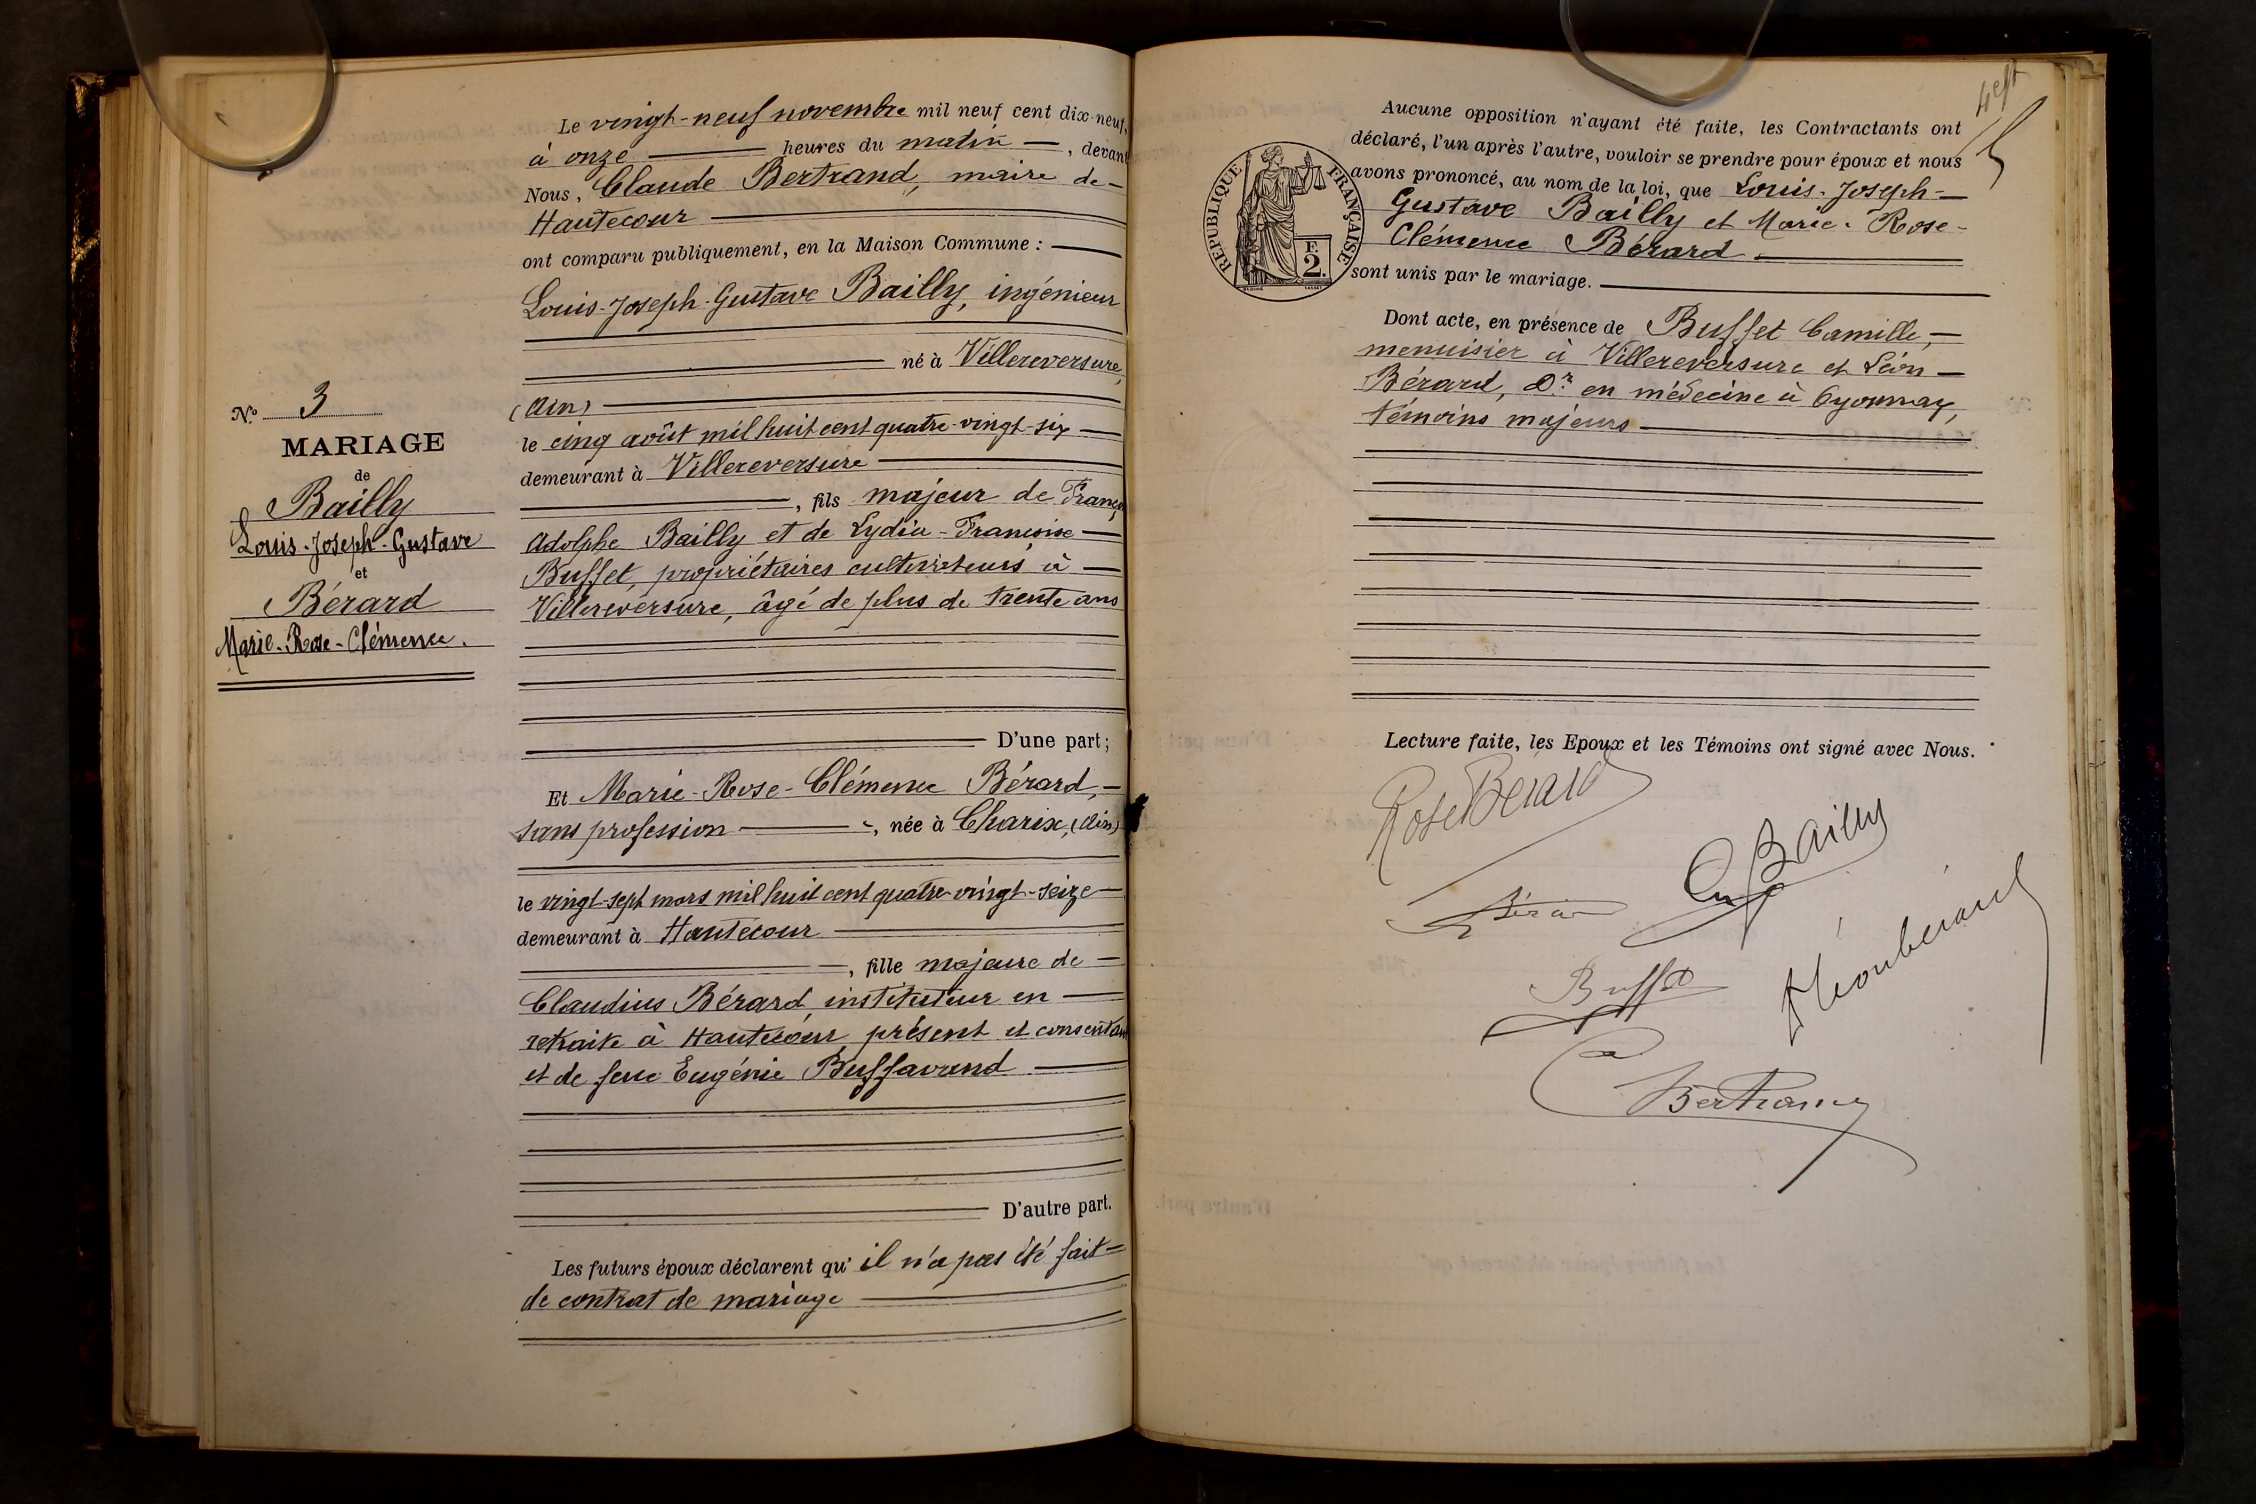 N.º 3
MARIAGE
de
Bailly
Louis-Joseph-Gustave
et
Bérard
Marie-Rose-Clémence.
Le vingt-neuf novembre mil neuf cent dix-neuf,
à onze heures du matin, devant
Nous, Claude Bertrand, maire de
Hautecour
ont comparu publiquement, en la Maison Commune :
Louis-Joseph-Gustave Bailly, ingénieur
né à Villereversure,
(Ain)
le cinq août mil huit cent quatre-vingt-six
demeurant à Villereversure
, fils majeur de
Adolphe Bailly et de Lydia-Françoise
Buffet, propriétaires cultivateurs à
Villereversure, âgé de plus de trente ans
D'une part;
Et Marie-Rose-Clémence Bérard,
sans profession, née à Charix, (Ain)
le vingt-sept mars mil huit cent quatre-vingt-seize
demeurant à Hautecour
, fille majeure de
Claudius Bérard, instituteur en
retraite à Hautecour présent et consentant
et de feue Eugénie Buffavand
D'autre part.
Les futurs époux déclarent qu'il n'a pas été fait
de contrat de mariage
4 sept
Aucune opposition n'ayant été faite, les Contractants ont
déclaré, l'un après l'autre, vouloir se prendre pour époux et nous
avons prononcé, au nom de la loi, que Louis-Joseph-
Gustave Bailly et Marie-Rose-
Clémence Bérard
sont unis par le mariage.
RÉPUBLIQUE FRANÇAISE
F.
2.
Dont acte, en présence de Buffet Camille,
menuisier à Villereversure et Léon
Bérard, Dr en médecine à Oyonnax,
témoins majeurs
Lecture faite, les Epoux et les Témoins ont signé avec Nous.
Rose Bérard
Bailly
Bérard
Léon Berard
Buffet
Bertrand